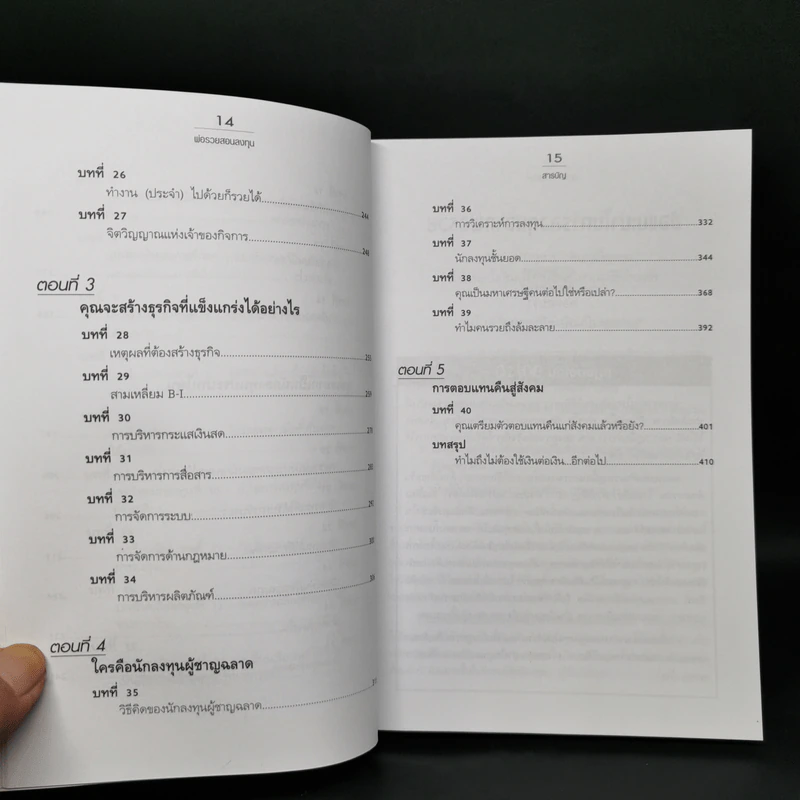 14
พ่อรวยสอนลงทุน
บทที่ 26
ทำงาน (ประจำ) ไปด้วยก็รวยได้
บทที่ 27
จิตวิญญาณแห่งเจ้าของกิจการ
ตอนที่ 3
คุณจะสร้างธุรกิจที่แข็งแกร่งได้อย่างไร
บทที่ 28
เหตุผลที่ต้องสร้างธุรกิจ
บทที่ 29
สามเหลี่ยม B-I
บทที่ 30
การบริหารกระแสเงินสด
บทที่ 31
การบริหารการสื่อสาร
บทที่ 32
การจัดการระบบ
บทที่ 33
การจัดการด้านกฎหมาย
บทที่ 34
การบริหารผลิตภัณฑ์
ตอนที่ 4
ใครคือนักลงทุนผู้ชาญฉลาด
บทที่ 35
วิธีคิดของนักลงทุนผู้ชาญฉลาด
15
สารบัญ
บทที่ 36
การวิเคราะห์การลงทุน 332
บทที่ 37
นักลงทุนชั้นยอด 344
บทที่ 38
คุณเป็นมหาเศรษฐีคนต่อไปใช่หรือเปล่า? 368
บทที่ 39
ทำไมคนรวยถึงล้มละลาย 392
ตอนที่ 5
การตอบแทนคืนสู่สังคม
บทที่ 40
คุณเตรียมตัวตอบแทนคืนแก่สังคมแล้วหรือยัง? 401
บทสรุป
ทำไมถึงไม่ต้องใช้เงินต่อเงิน...อีกต่อไป 410